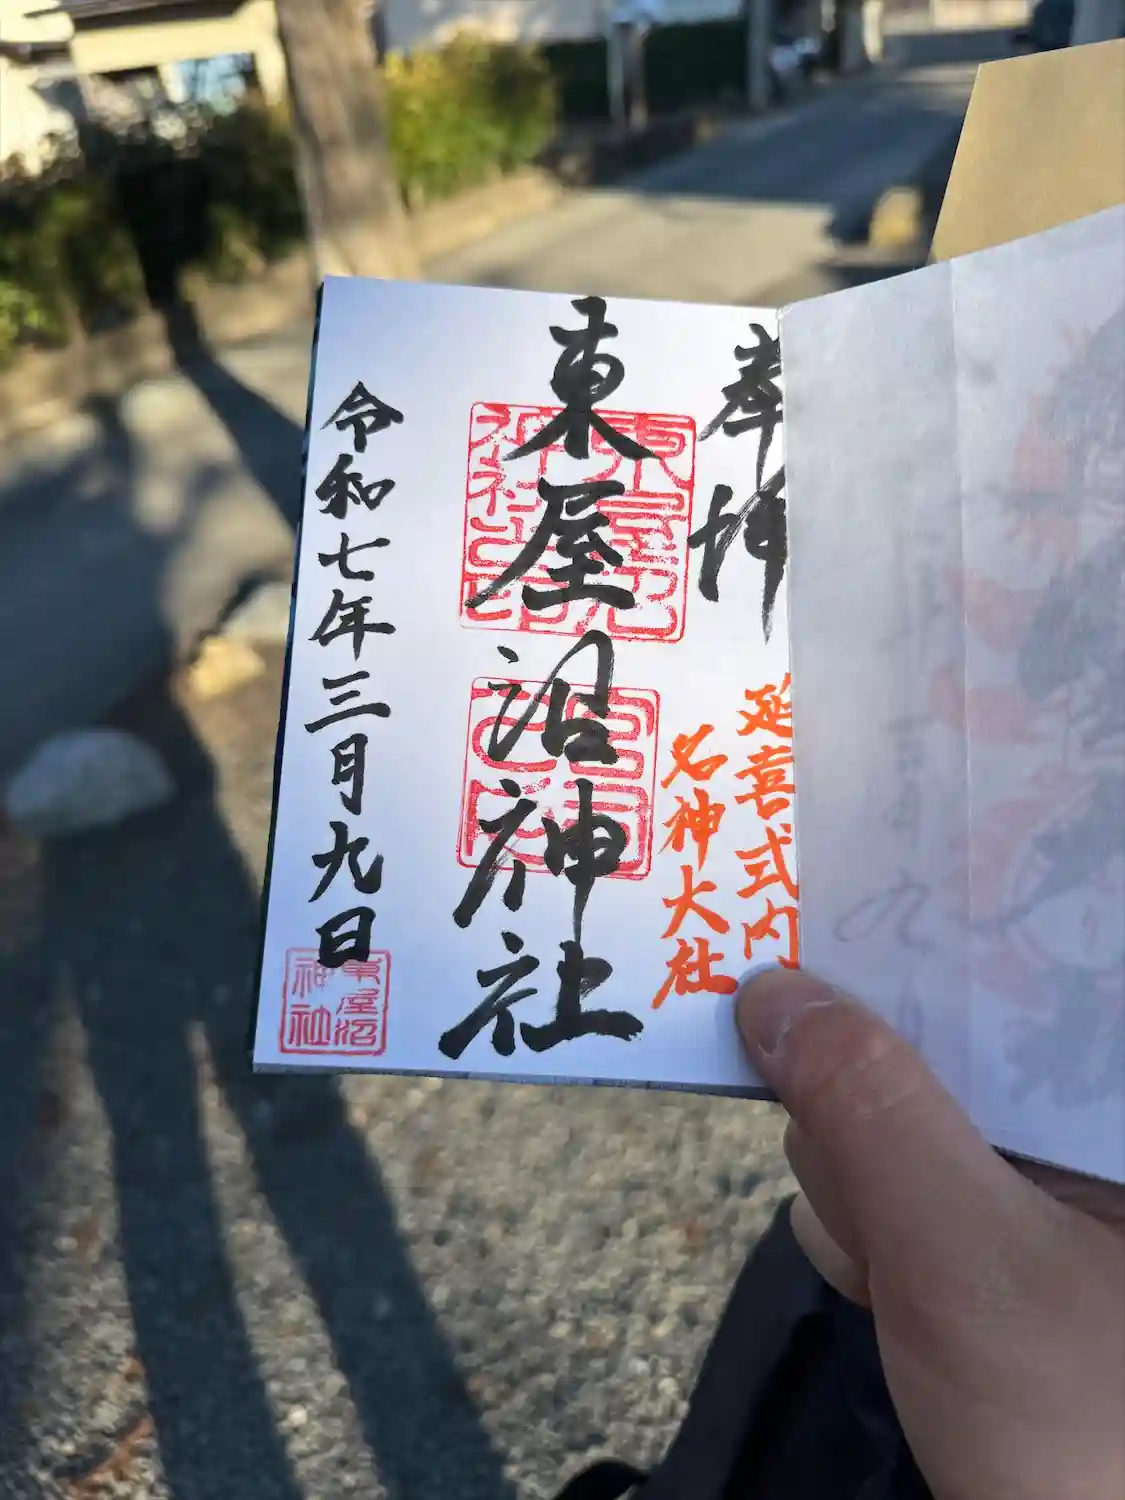 奉拝
延喜式内
名神大社
東屋沼神社
東屋沼
神社
令和七年三月九日
東屋沼
神社